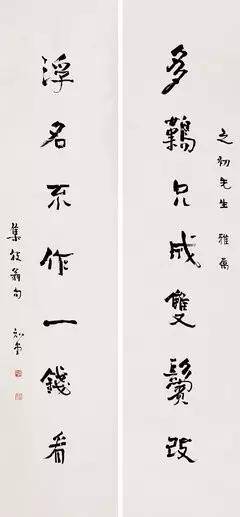 之初先生 雅屬
多難只成雙鬢改
浮名不作一錢看
集放翁句 知堂